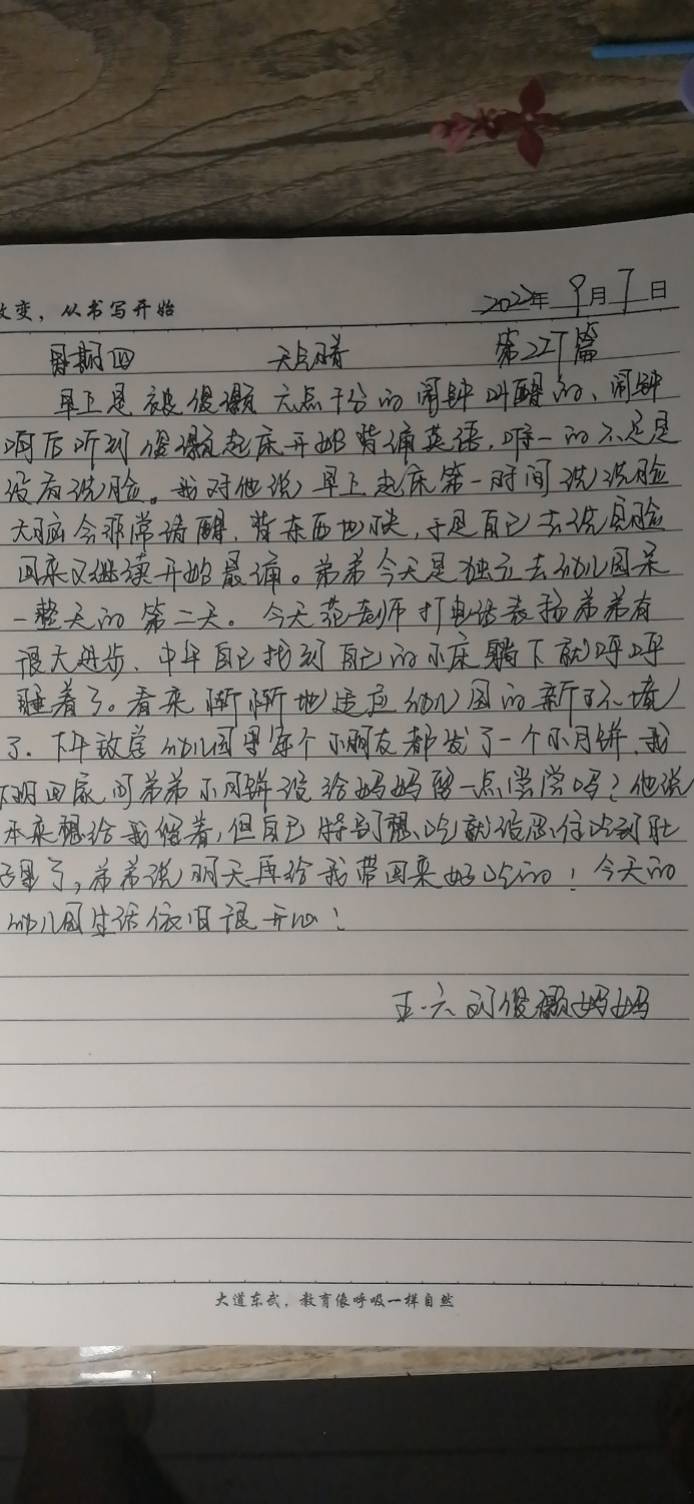 改变，从书写开始
2022年 9月7日
星期四 天气晴 第227篇
早上是被俊灏六点十分的闹钟叫醒的、闹钟
响后听到俊灏起床开始背诵英语，唯一的不足是
没有洗脸。我对他说，早上起床第一时间洗洗脸
大脑会非常清醒，背东西也快，于是自己去洗完脸
回来又继续开始晨诵。弟弟今天是独立去幼儿园呆
一整天的第二天。今天范老师打电话表扬弟弟有
很大进步、中午自己找到自己的小床躺下就呼呼
睡着了。看来渐渐地适应幼儿园的新环境
了．下午放学幼儿园里每个小朋友都发了一个小月饼，我
回家问弟弟小月饼没给妈妈留一点尝尝吗？他说
本来想给我留着，但自己特别想吃就没忍住吃到肚
子里了，弟弟说明天再给我带回来好吃的！今天的
幼儿园生活依旧很开心！
五.六 刘俊灏妈妈
大道东武，教育像呼吸一样自然